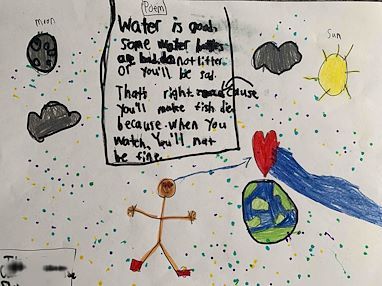 Poem
moon
sun
Water is good,
some water bottles
are bad, do not litter
or you'll be sad.
That's right, cause
you'll make fish die
because when you
watch, you'll not
be fine.